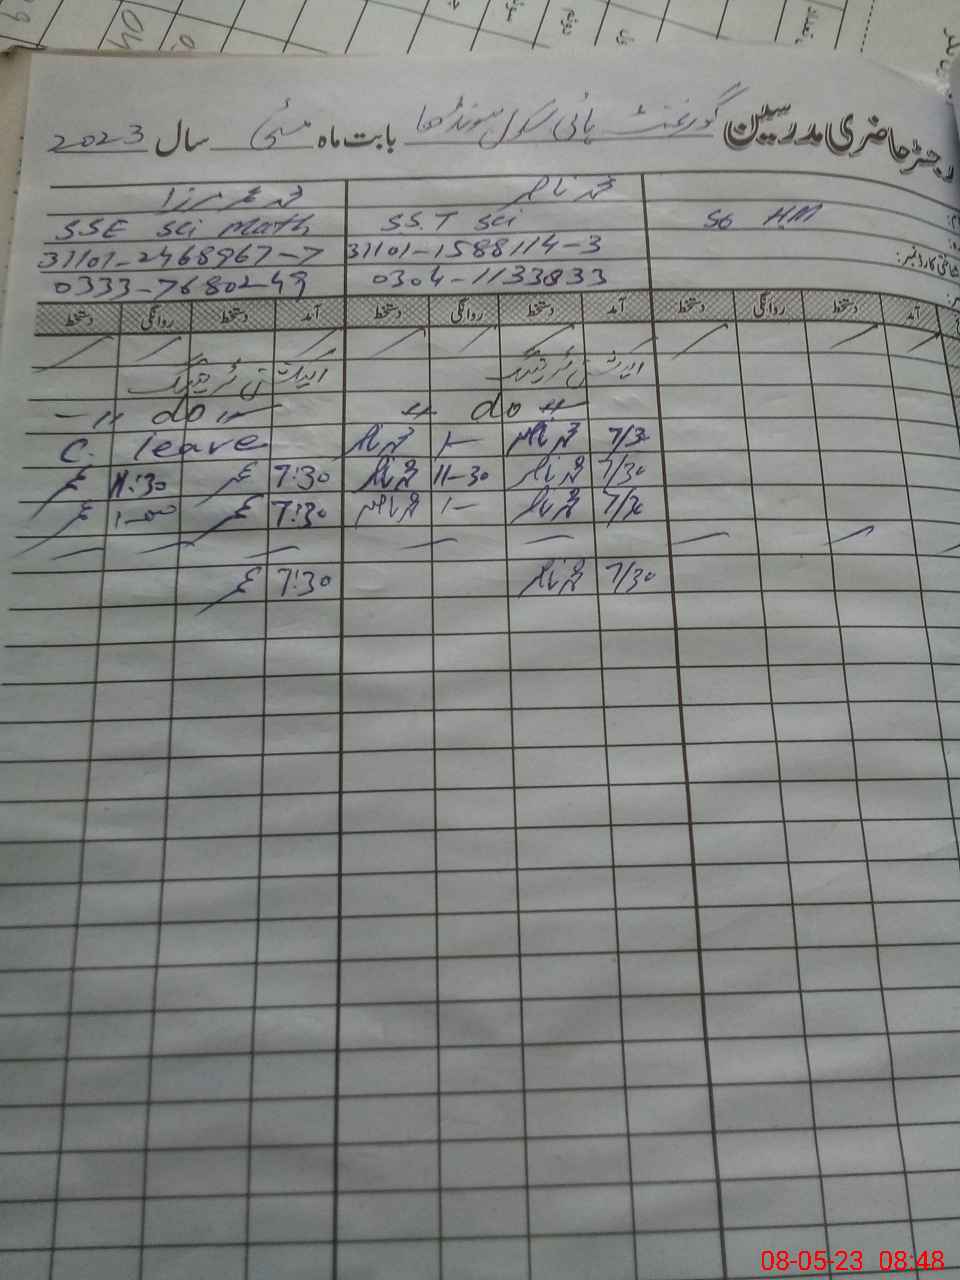 رجسٹر حاضری مدرسین گورنمنٹ ہائی سکول بابت ماہ مئی سال 2023
محمد ناصر محمد عمر مرزا
S6 HM SS.T Sci SSE Sci Math
شناختی کارڈ نمبر: 31101-1588114-3 31101-2468967-7
0304-1133833 0333-7680249
آمد دستخط روانگی دستخط آمد دستخط روانگی دستخط آمد دستخط روانگی دستخط
-11 do 11-
11 do 11
7/30 محمد ناصر 1- محمد ناصر C. leave
7/30 محمد ناصر 11-30 محمد ناصر 7:30 عمر 11:30 عمر
7/30 محمد ناصر 1- محمد ناصر 7:30 عمر 1-00 عمر
7/30 محمد ناصر 7:30 عمر
08-05-23 08:48